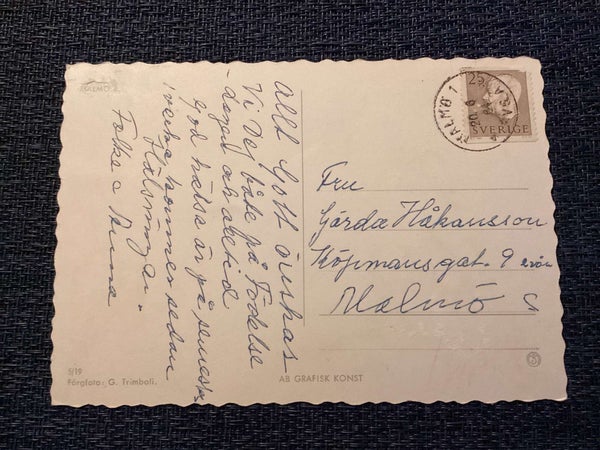 Allt Gott önskas
Vi Dej både på Födelse
-dagen och alltid
god hälsa är på semester
1 vecka kommer sedan
Hälsningar
Folke o Anna
Fru
Gärda Håkansson
Köpmansgat. 9
Malmö C
MALMÖ 1
SVERIGE
5/19
Färgfoto: G. Trimboli.
AB GRAFISK KONST